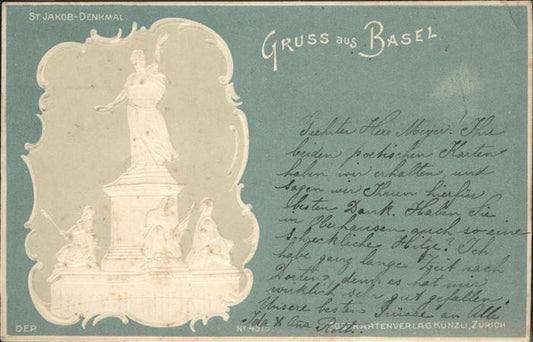 ST JAKOB-DENKMAL.
GRUSS aus BASEL
Geehrter Herr Meyer. Ihre
beiden poetischen Karten
haben wir erhalten, und
sagen wir Ihnen hierfür
besten Dank. Haben Sie
in Oberhausen auch so eine
schreckliche Hitze? Ich
habe ganz lange Zeit nach
dorten, denn es hat mir
wirklich sehr gut gefallen.
Unsere besten Grüsse an Alle
Ida &
DEP.
POSTKARTENVERLAG KÜNZLI, ZÜRICH